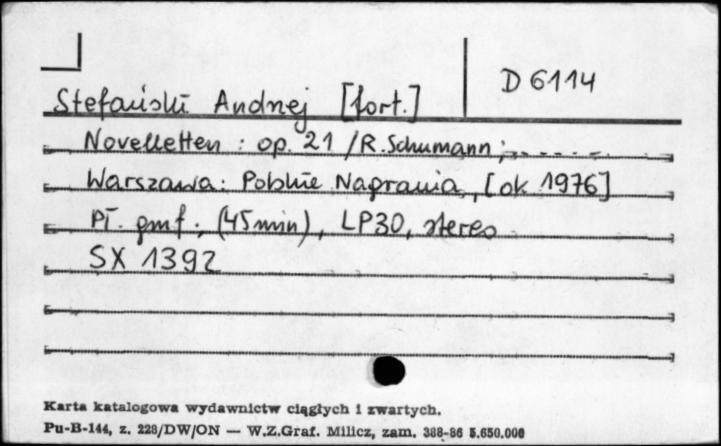 D 6114
Stefański Andrzej [fort.]
Novelletten : op. 21 / R. Schumann ; - - - - -
Warszawa : Polskie Nagrania, [ok 1976]
Pł. gmf., (45 min), LP30, stereo
SX 1392
Karta katalogowa wydawnictw ciągłych i zwartych.
Pu-B-144, z. 228/DW/ON — W.Z.Graf. Milicz, zam. 388-86 5.650.000